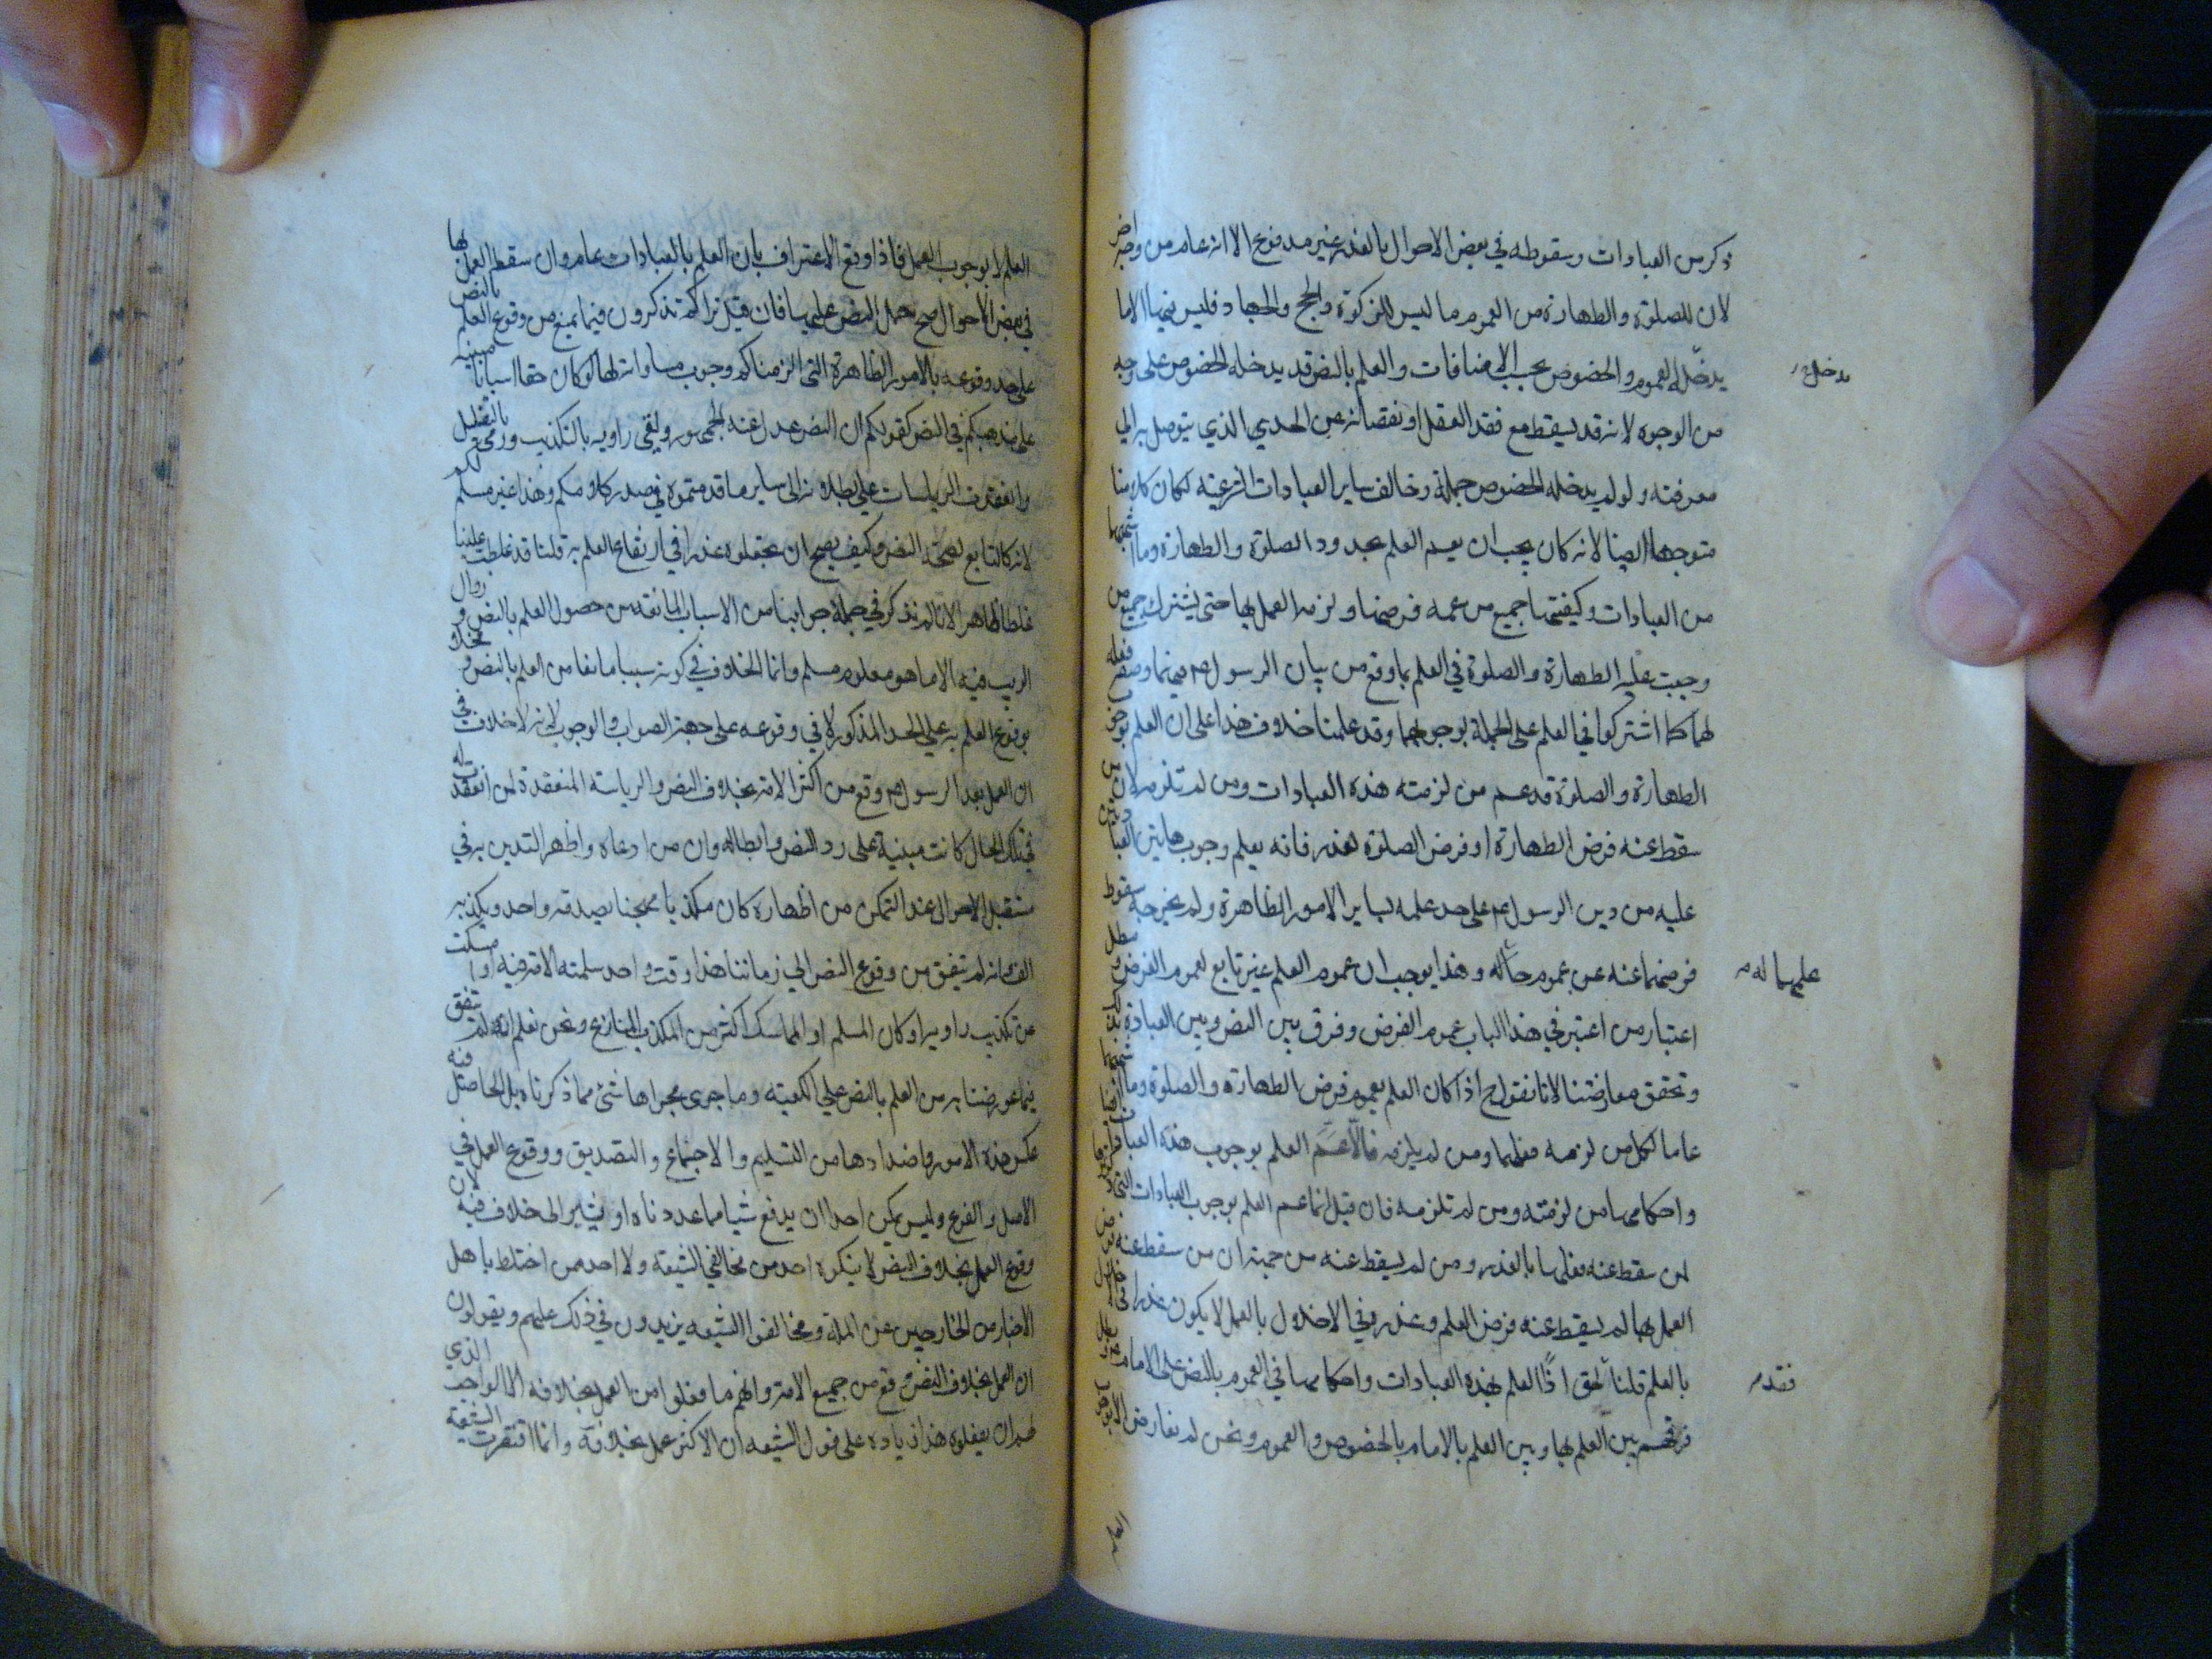 ذكر من العبادات وسقوطه في بعض الاحوال بالعذر غير مدفوع الا انه عام من وجه اخر
لان للصلوة والطهارة من العموم ما ليس للزكوة والحج والجهاد فليس فيها الا ما
يدخله العموم والخصوص بحسب الاضافات والعلم بالنص قد يدخله الخصوص على وجه
من الوجوه لانه قد يسقط مع فقد العقل او نقصانه عن الحد الذي يتوصل به الي
معرفته ولو لم يدخله الخصوص جملة وخالف ساير العبادات الشرعية لكان كلامنا
متوجها ايضا لانه كان يجب ان يعم العلم بحدود الصلوة والطهارة وما اشبهها
من العبادات وكيفيتها جميع من عمه فرضها ولزمه العمل بها حتى يشترك جميع من
وجبت عليه الطهارة والصلوة في العلم بما وقع من بيان الرسول ص فيهما وصفة فعله
لهما كما اشتركوا في العلم على الجملة بوجوبهما وقد علمنا خلاف هذا على ان العلم بوجوب
الطهارة والصلوة قد عم من لزمته هذه العبادات ومن لم تلزمه لان من
سقط عنه فرض الطهارة او فرض الصلوة لعذر فانه يعلم وجوب هاتين العبادتين
عليه من دين الرسول ع على حد علمه بساير الامور الظاهرة ولم يخرجه سقوط
فرضهما عنه عن عموم حاله وهذا يوجب ان عموم العلم غير تابع لعموم الفرض و
اعتبار من اعتبر في هذا الباب عموم الفرض وفرق بين النص وبين العبادة
وتحقق معارضتنا لانا نقول ح اذا كان العلم بعموم فرض الطهارة والصلوة وما اشبههما
عاما لكل من لزمه فعلهما ومن لم يلزمه فالا عم العلم بوجوب هذه العبادات
واحكامها من لزمته ومن لم تلزمه فان قيل انما عم العلم بوجوب العبادات التي
لمن سقط عنه فعلها بالعذر ومن لم يسقط عنه من حيث ان من سقط عنه
العمل بها لم يسقط عنه فرض العلم وعذره في الاخلال بالعمل لا يكون عذرا في
بالعلم قلنا لحق اذا العلم بهذه العبادات واحكامها في العموم بالنص على الامام
فرقهم بين العلم بها وبين العلم بالامام بالخصوص والعموم ونحن لم نعارض الا بوجوب
مدخل
عليهما له
فقدم
العلم
العلم لا بوجوب العمل فاذا وقع الاعتراف بان العلم بالعبادات عام وان سقط العمل بها
في بعض الاحوال صح حمل النص عليها فان قيل نراكم تذكرون فيما يمنع من وقوع العلم بالنص
على حد وقوعه بالامور الظاهرة التي الزمناكم وجوب مساواته لها لو كان حقا اسبابا مبنية
على مذهبكم في النص كقولكم ان النص عدل عنه الجمهور ولقى راويه بالتكذيب ورمي بالتقليل
وانعقدت الرياسات على ابطاله الى ساير ما قدمتموه في صدر كلامكم وهذا غير مسلم لكم
لانه كالتابع لصحة النص وكيف يصح ان تجعلوه عذرا في ارتفاع العلم به قلنا قد غلطت علينا
غلطا ظاهرا لانا لم نذكر في جملة جوابنا من الاسباب المانعة من حصول العلم بالنص و زوال
الريب فيه الا ما هو معلوم مسلم وانما الخلاف في كونه سببا مانعا من العلم بالنص و مخلا
بوقوع العلم به على الحد المذكور لا في وقوعه على جهة الصواب والوجوب لانه لا خلاف في
ان العمل بعد الرسول ص وقع من اكثر الامة بخلاف النص والرياسة المنعقدة لمن انعقدت له
في تلك الحال كانت مبنية على رد النص وابطاله وان من ادعاه واظهر التدين به في
مستقبل الاحوال عند التمكن من اظهاره كان مكذبا مهجنا يصدقه واحد ويكذبه
الف وانه لم يتفق من وقوع النص الي زماننا هذا وقت واحد سلمته الامة فيه او امسكت
عن تكذيب راويه او كان المسلم او المماسك اكثر من المكذب المنازع ونحن نعلم انه لم يتفق
فيما عورضنا به من العلم بالنص على الكعبة وما جرى مجراها شئ مما ذكرناه بل الحاصل فيه
عكس هذه الامور واضدادها من التسليم والاجتماع والتصديق ووقوع العمل في
الاصل والفرع وليس يمكن احدا ان يدفع شيا مما عددناه او يشير الى خلاف فيه لان
وقوع العمل بخلاف النص لا ينكره احد من مخالفي الشيعة ولا احد ممن اختلط باهل
الاخبار من الخارجين عن الملة ومخالفوا الشيعه يزيدون في ذلك عليهم ويقولون
ان العمل بخلاف النص وقع من جميع الامة وانهم ما فعلوا من العمل بخلافه الا الواجب الذي
لهم ان يفعلوه هذا زيادة على قول الشيعه ان الاكثر عمل بخلافه وانما افتقرت الشيعة